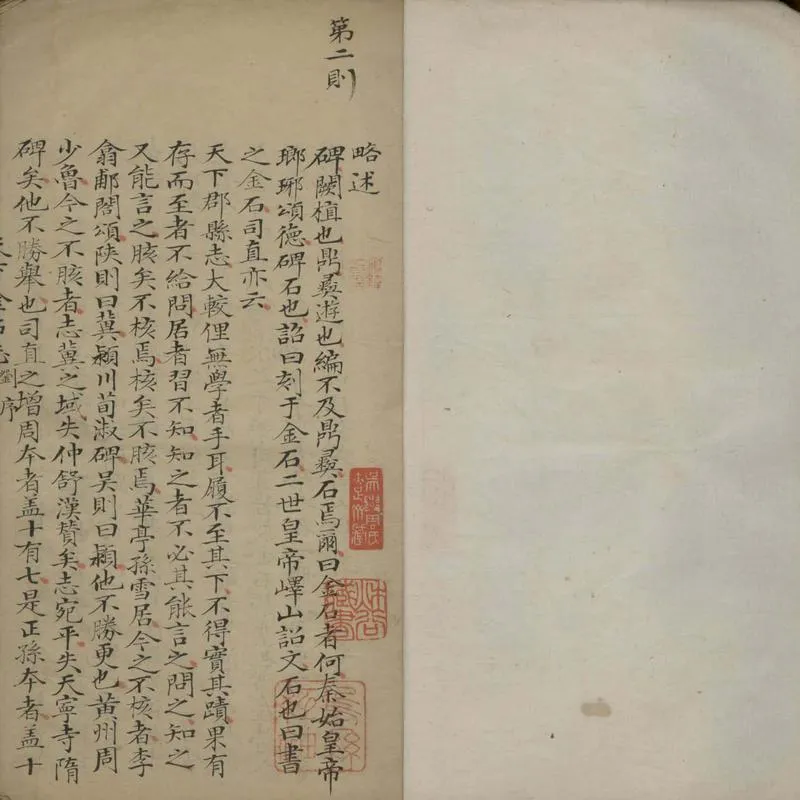 第二則
略述
碑闕植也鼎彝遊也編不及鼎彝石焉爾曰金石者何秦始皇帝
瑯琊頌德碑石也詔曰刻于金石二世皇帝嶧山詔文石也曰書
之金石司直亦云
天下郡縣志大較俚無學者手耳履不至其下不得實其蹟果有
存而至者不給問居者習不知知之者不必其能言之問之知之
又能言之賅矣不核焉核矣不賅焉華亭孫雪居今之不核者李
翕郙閣頌陝則曰冀潁川荀淑碑吳則曰潁他不勝更也黃州周
少魯今之不賅者志冀之域失仲舒漢贊矣志宛平失天寧寺隋
碑矣他不勝舉也司直之增周夲者盖十有七是正孫夲者盖十
天下金石志
劉序